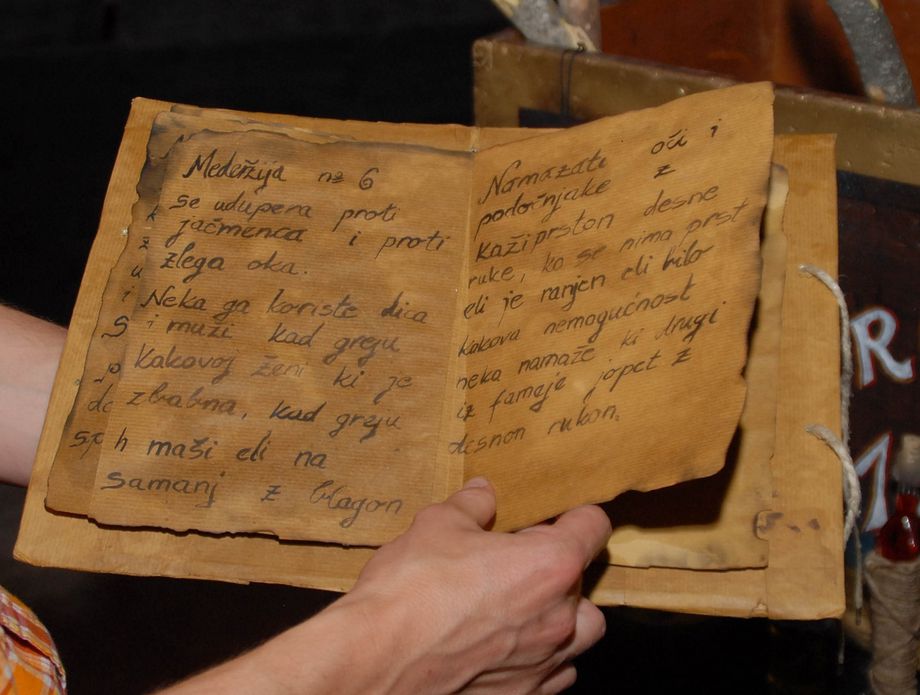 Mederžija nº 6
se udupera proti
jačmenca i proti
zlega oka.
Neka ga koriste dica
i muži kad greju
kakovoj ženi ki je
zbabna, kad greju
h maši eli na
samanj z blagon
Namazati oči i
podočnjake z
kažiprston desne
ruke, ko se nima prst
eli je ranjen eli bilo
kakova nemogućnost
neka namaže ki drugi
iz fameje jopet z
desnon rukon.
R
1